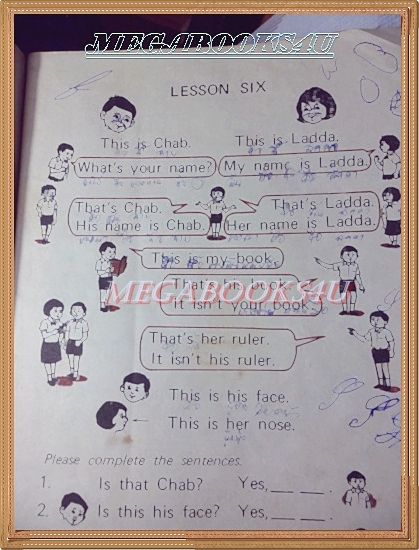 MEGABOOKS4U
LESSON SIX
This is Chab. This is Ladda.
What's your name? My name is Ladda.
That's Chab. That's Ladda.
His name is Chab. Her name is Ladda.
This is my book.
That's his book.
MEGABOOKS4U
It isn't your book.
That's her ruler.
It isn't his ruler.
This is his face.
This is her nose.
Please complete the sentences.
1. Is that Chab? Yes, __ __ .
2. Is this his face? Yes, __ __ .